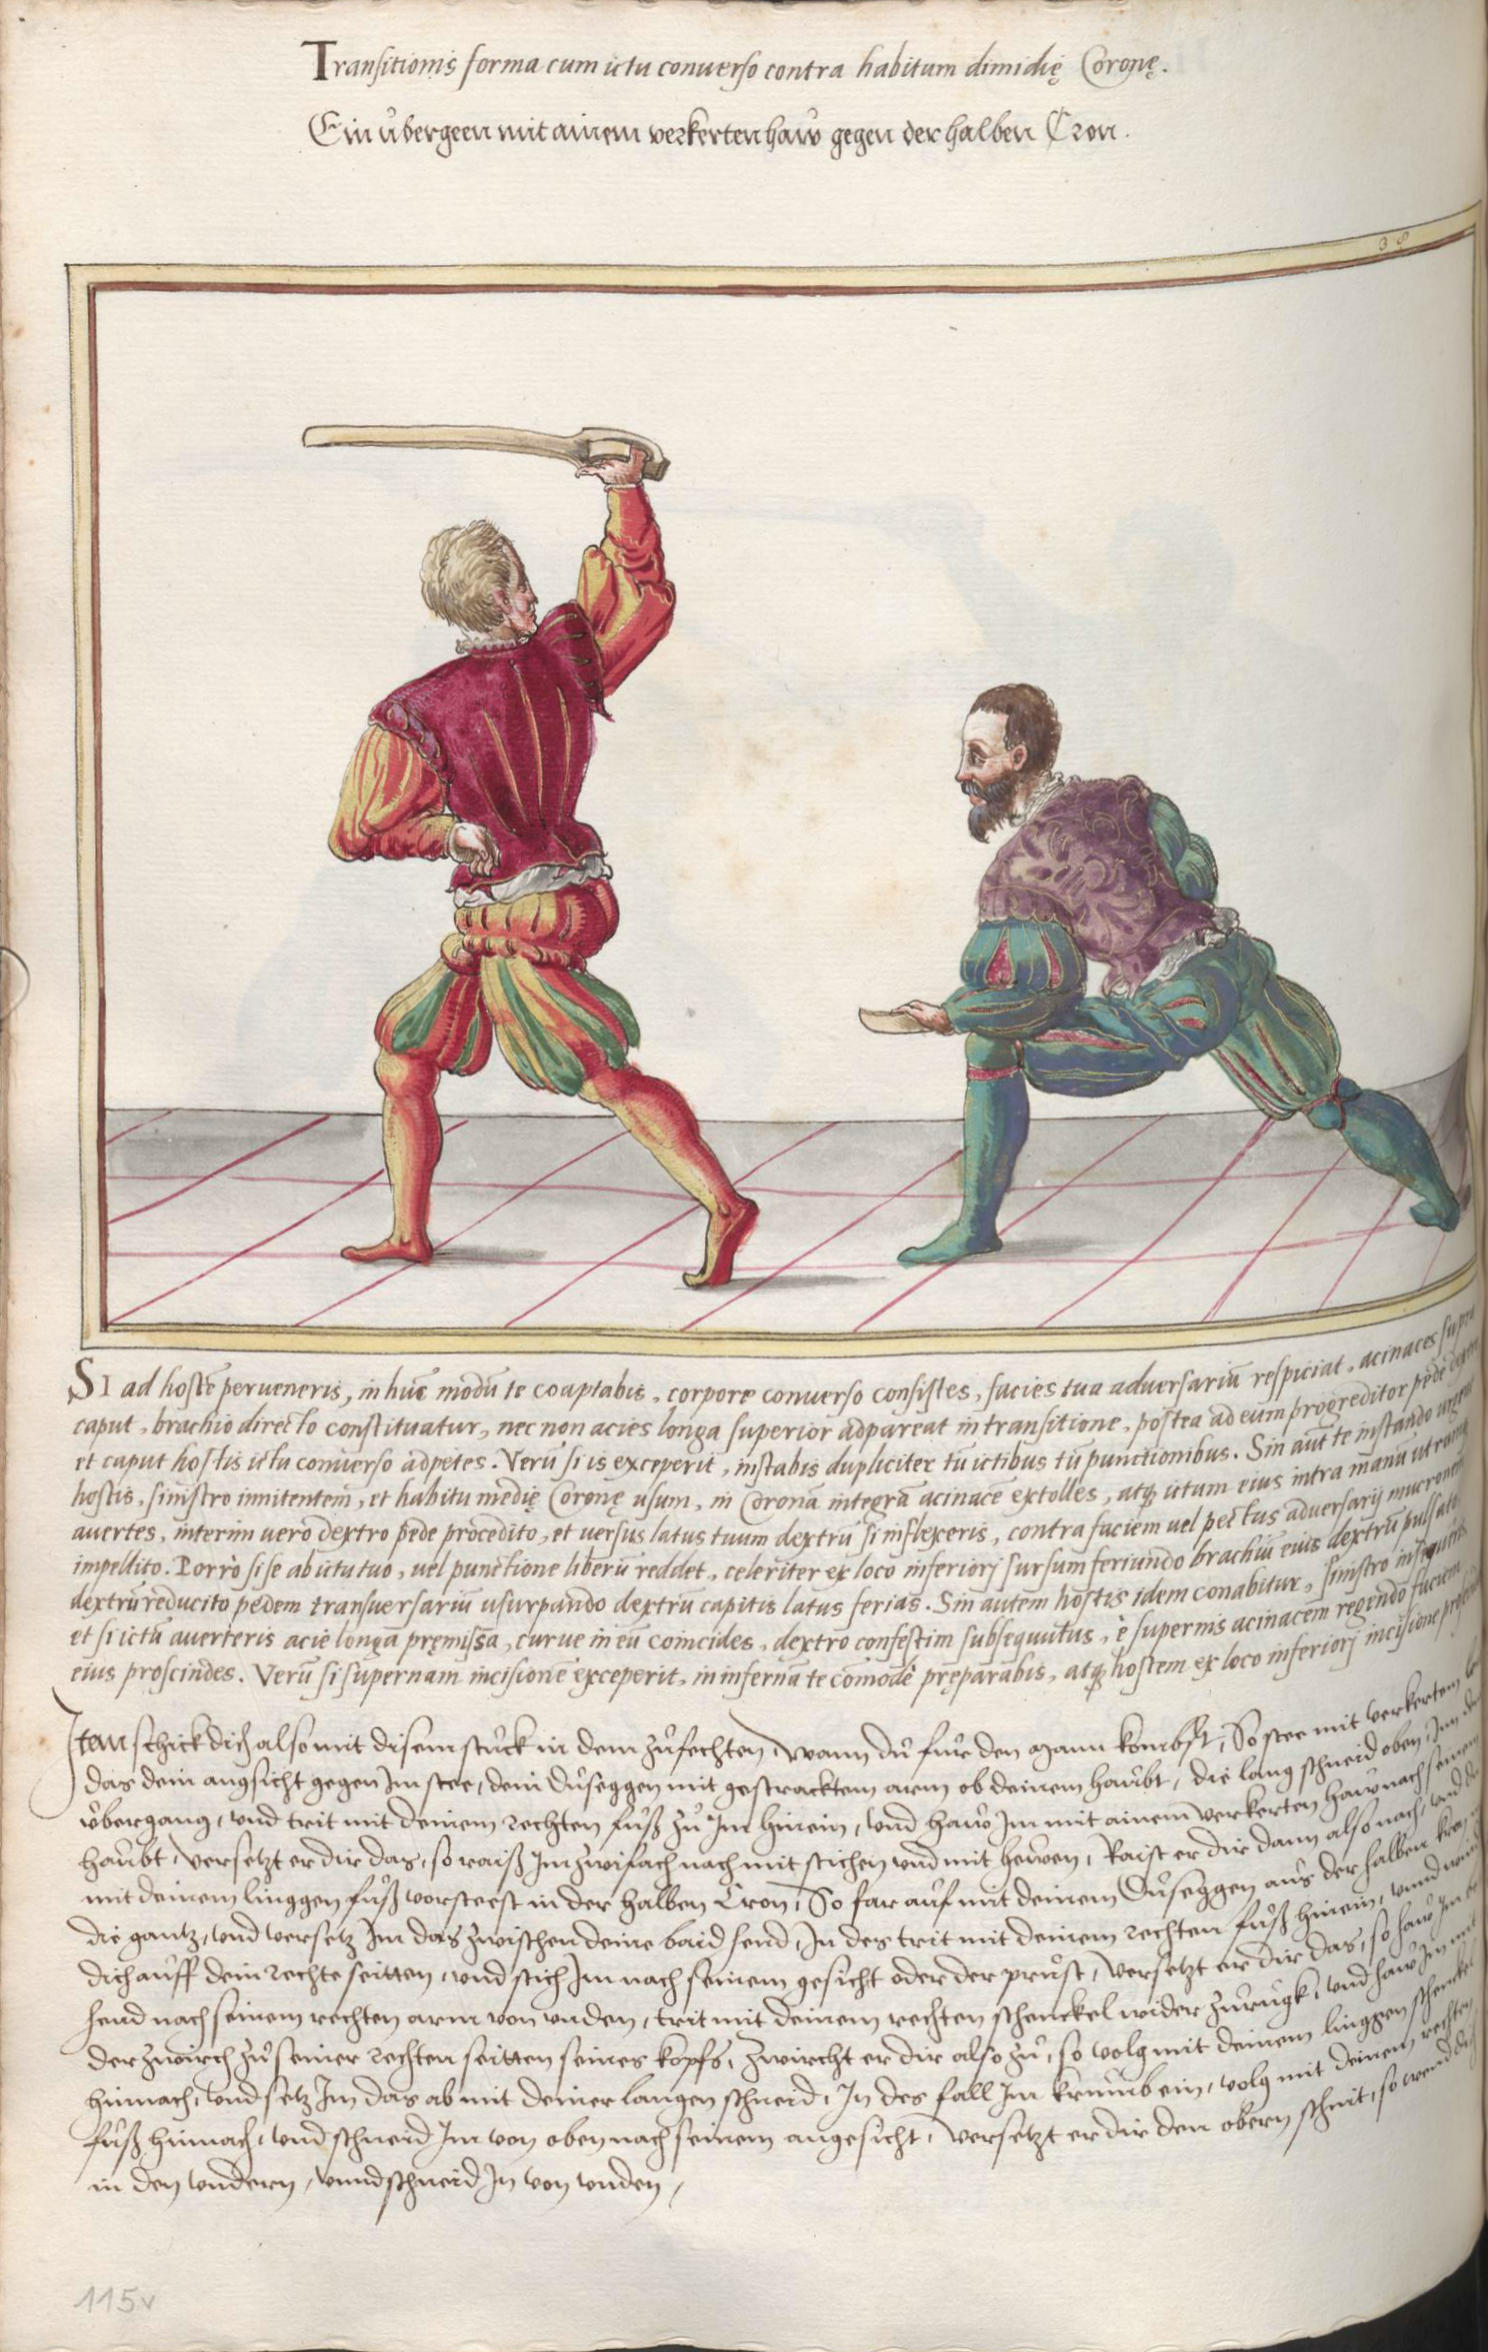 Transitionis forma cum ictu conuerso contra habitum dimidię Coronę.
Ein übergeen mit ainem verkerten haw gegen der halben Cron.
38
SI ad hostē perueneris, in hūc modū te coaptabis, corpore conuerso consistes, facies tua aduersariū respiciat, acinaces supra
caput, brachio directo constituatur, nec non acies longa superior adpareat in transitione, postea ad eum progreditor pede dextro
et caput hostis ictu conuerso adpetes. Verū si is exceperit, instabis dupliciter tū ictibus tū punctionibus. Sin aūt te instando urgeat
hostis, sinistro innitentem, et habitu medię Coronę usum, in Coronā integrā acinacē extolles, atq, ictum eius intra manū utramq,
auertes, interim uero dextro pede procedito, et uersus latus tuum dextrū si inflexeris, contra faciem uel pectus aduersarij mucronem
impellito. Porrò si se ab ictu tuo, uel punctione liberū reddet, celeriter ex loco inferiorj sursum feriundo brachiū eius dextrū pulsato
dextrū reducito pedem transuersariū usurpando dextrū capitis latus ferias. Sin autem hostis idem conabitur, sinistro insequitor
et si ictū auerteris acie longa pręmissa, curue in eū coincides, dextro confestim subsequutus, è supernis acinacem regendo faciem
eius proscindes. Verū si supernam incisionē exceperit, in infernā te cōmodè pręparabis, atq, hostem ex loco inferiorj incisione
Item schick dich also mit disem stuck in dem zůfechten, wann dů fur den man kombst, So stee mit verkertem
das dein angsicht gegen Im stee, dein duseggen mit gestracktem arm ob deinem haubt, die lang schneid oben, Im
übergang, vnd trit mit deinem rechten fůß zů Im hinein, vnd haw Im mit ainem verkerten haw nach seinem
haubt, versetzt er dir das, so raiß Im zwifach nach mit stichen vnd mit hewen, Raist er dir dann also nach, vnd du
mit deinem linggen fůß vorsteest in der halben Cron, So far auf mit deinem Dusęggen aus der halben kron
die gantz, vnd versetz Im das zwischen deine baid hend, In des trit mit deinem rechten fůß hinein, vnnd wend
dich auff dein rechte seitten, vnd stich Im nach seinem gesicht oder der prust, versetzt er dir das, so haw Im
hend nach seinem rechten arm von vnden, trit mit deinem rechten schenckel wider zurugk, vnd haw Im mit
der zwirch zů seiner rechten seitten seines kopfs, zwircht er dir also zů, so volg mit deinem linggen schenckel
hinnach, vnd setz Im das ab mit deiner langen schneid, In des fall Im krumb ein, volg mit deinem rechten
fůß hinnach, vnd schneid Im von oben nach seinem angesicht, versetzt er dir den obern schnit, so wend dich
in den vndern, vnnd schneid In von vnden,
115v